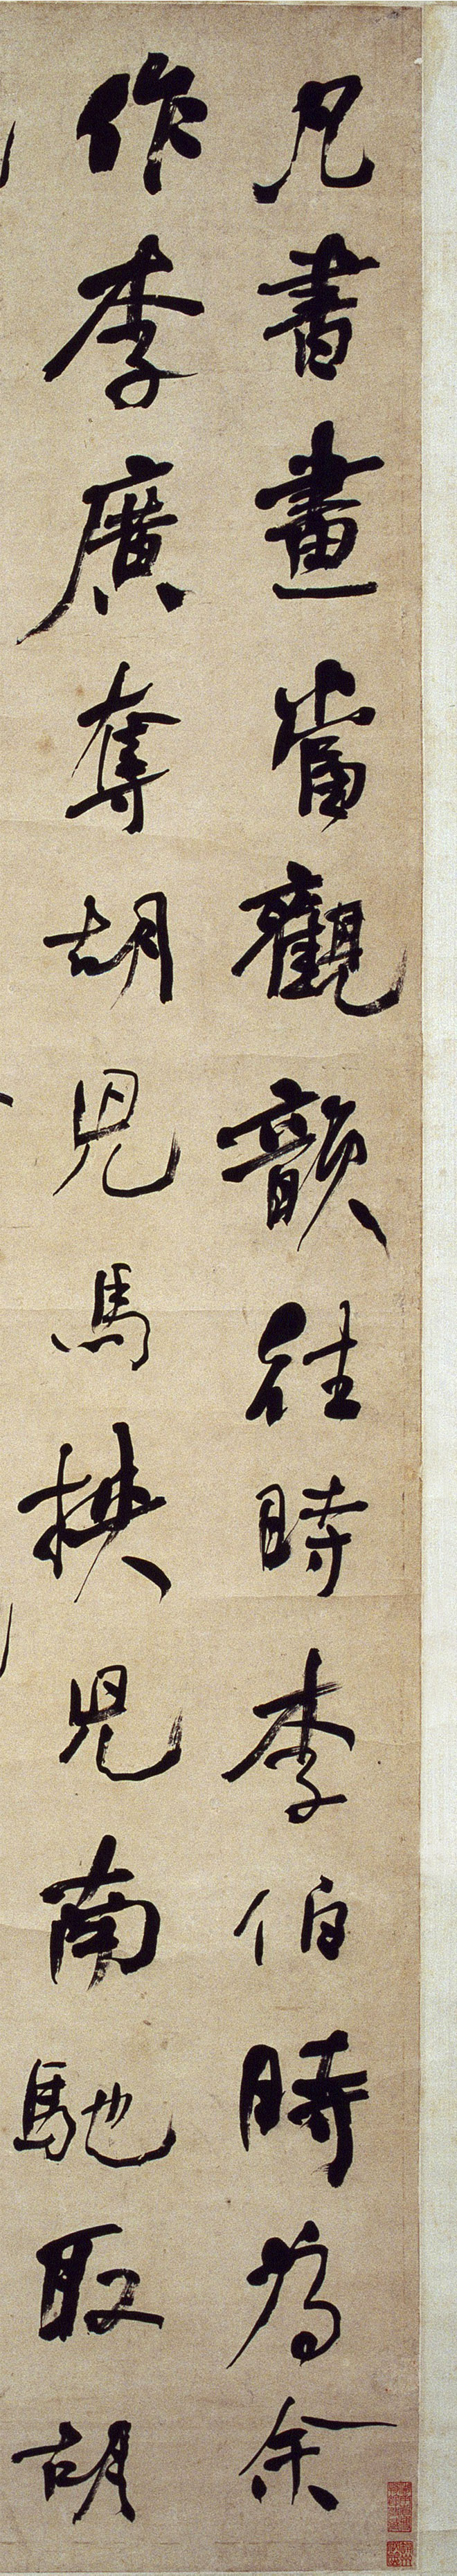 凡書畫當觀韻往時李伯時為余
作李廣奪胡児馬挾児南馳取胡